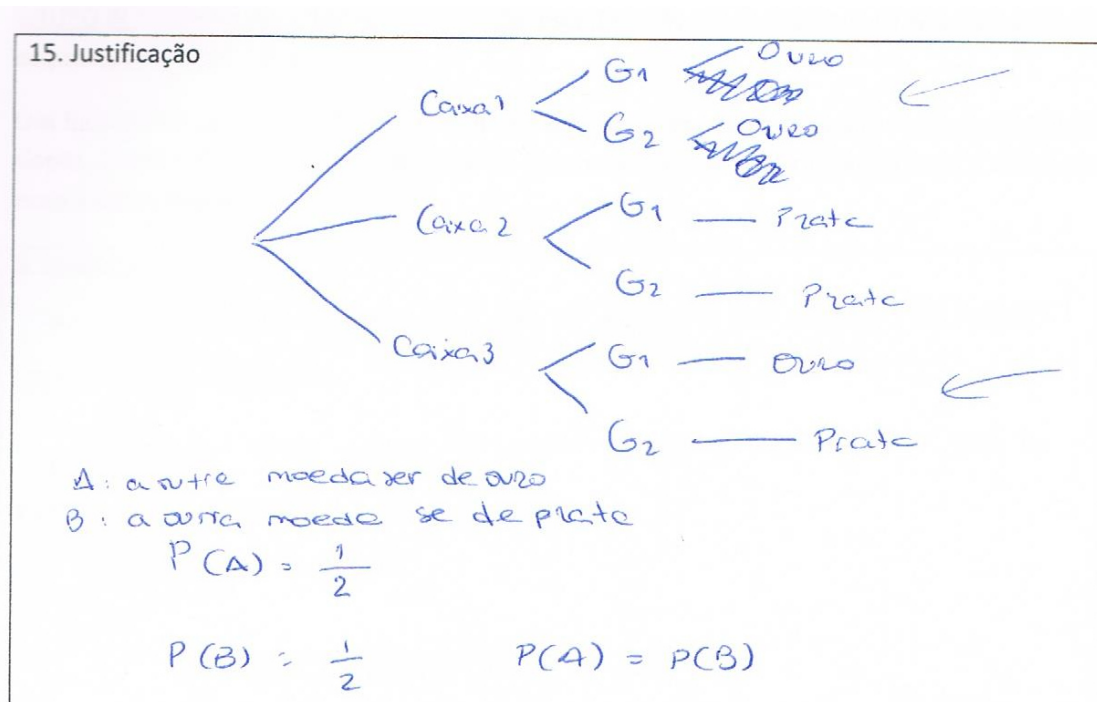 15. Justificação
Caixa 1
G1 Ouro
G2 Ouro
Caixa 2
G1 — Prata
G2 — Prata
Caixa 3
G1 — Ouro
G2 — Prata
A: a outra moeda ser de ouro
B: a outra moeda se de prata
P(A) = 1/2
P(B) = 1/2 P(A) = P(B)